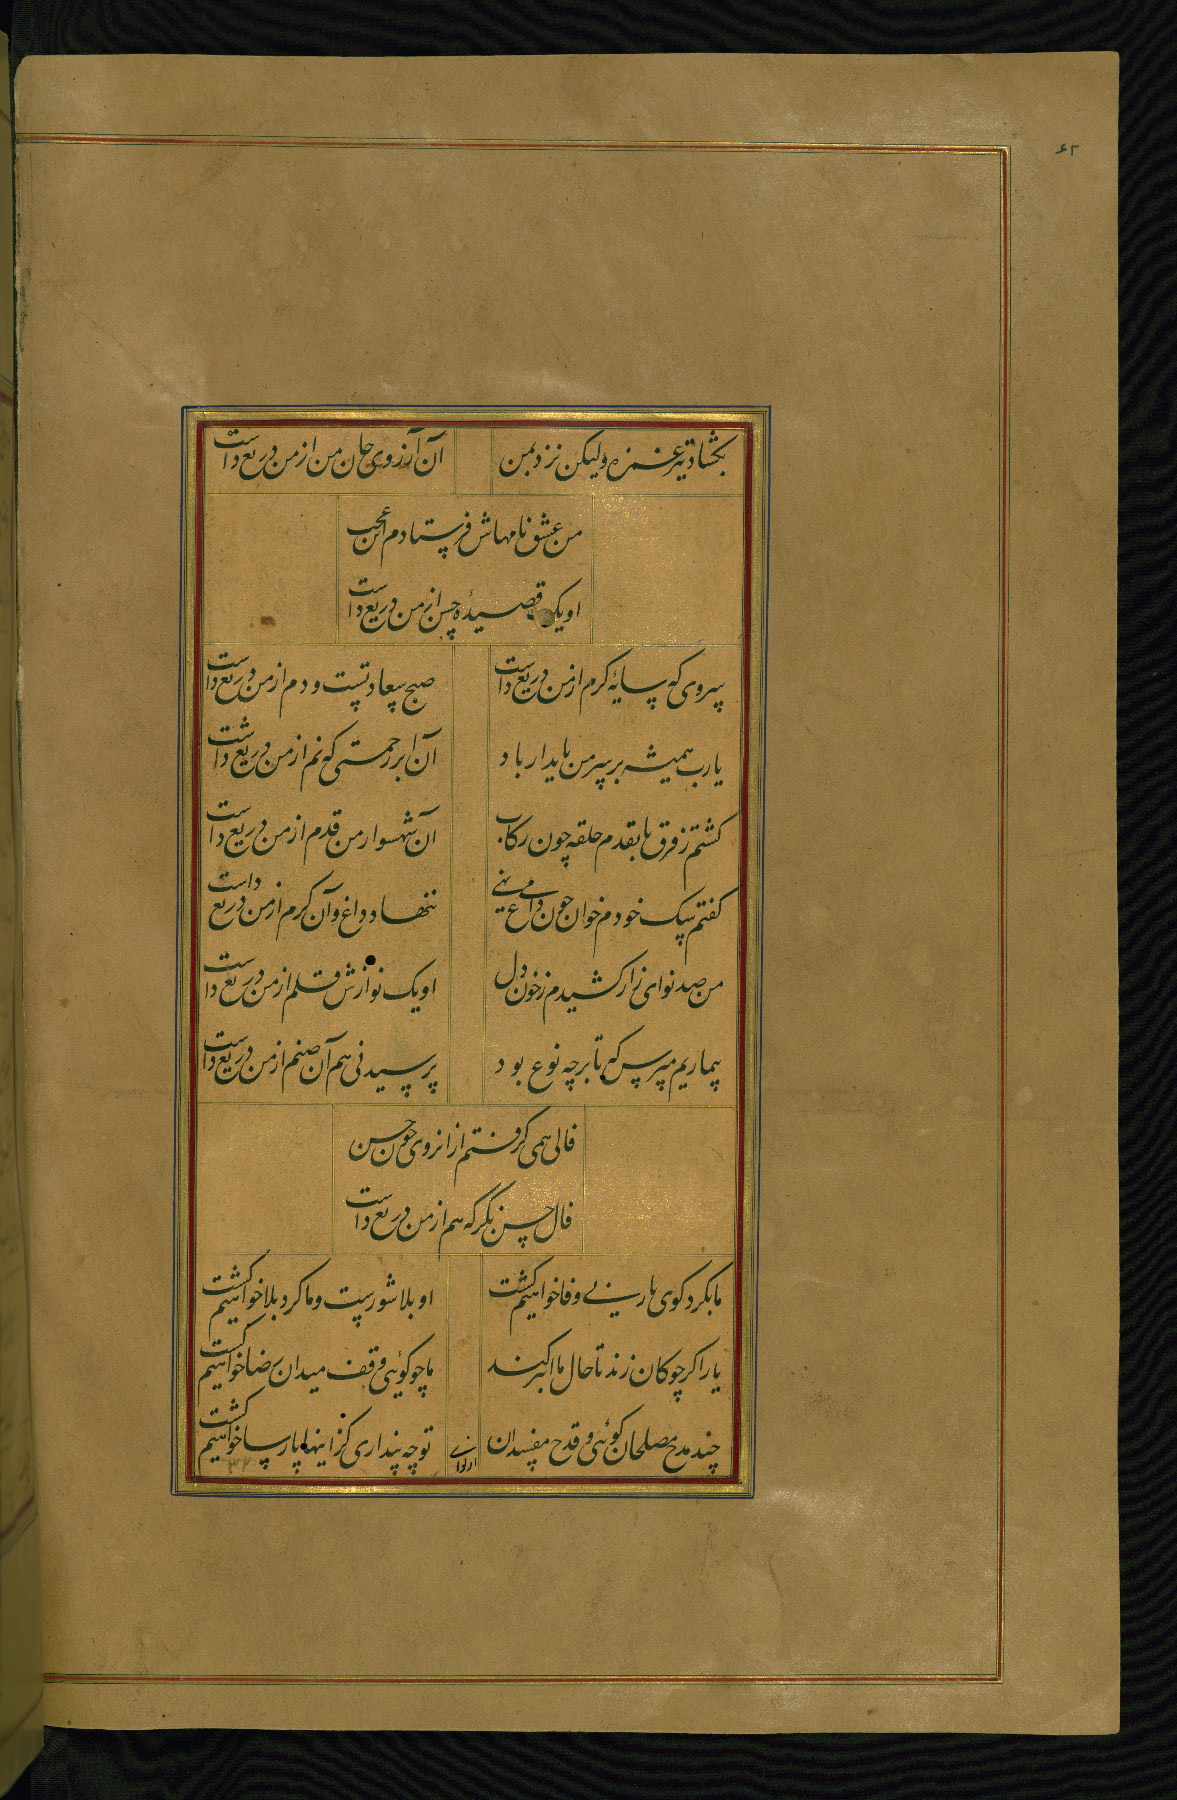 ۶۳
بگشاد تیر غمزه ولیکن نزد بمن
آن آرزوی جان من از من دریغ داشت
من عشق نامهاش فرستادم این عجب
او یک قصیدهٔ حسن از من دریغ داشت
سروی که سایهٔ کرم از من دریغ داشت
صبح سعادتست و دم از من دریغ داشت
یارب همیشه بر سر من پایدار باد
آن ابر رحمتی که نم از من دریغ داشت
کشتم ز فرق تا بقدم حلقه چون رکاب
آن شهسوار من قدم از من دریغ داشت
کفتم سک خودم خوان چون داغ می نهی
ننهاد داغ و آن کرم از من دریغ داشت
من صد نوای زار کشیدم ز خون دل
او یک نوازش قلم از من دریغ داشت
بیماریم مپرس که تا بر چه نوع بود
پرسیدنی هم آن صنم از من دریغ داشت
فالی همی کرفتم از ان روی چون حسن
فال حسن نکر که هم از من دریغ داشت
ما بکرد کوی یار بی وفا خواهیم کشت
او بلا شورست و ما کرد بلا خواهیم کشت
یار اکر چوکان زند تا حال ما اکبر کند
ما چو کوئی وقف میدان رضا خواهیم کشت
چند مدح مصلحان کوئی و قدح مفسدان
تو چه پنداری کز اینها پارسا خواهیم کشت